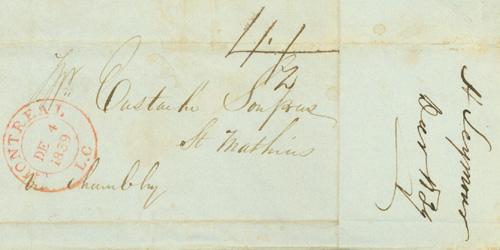 4 1/2
Mr Eustache Soupras
St Mathias
via Chambly
MONTREAL L.C
DE 4
1839
H Seymour